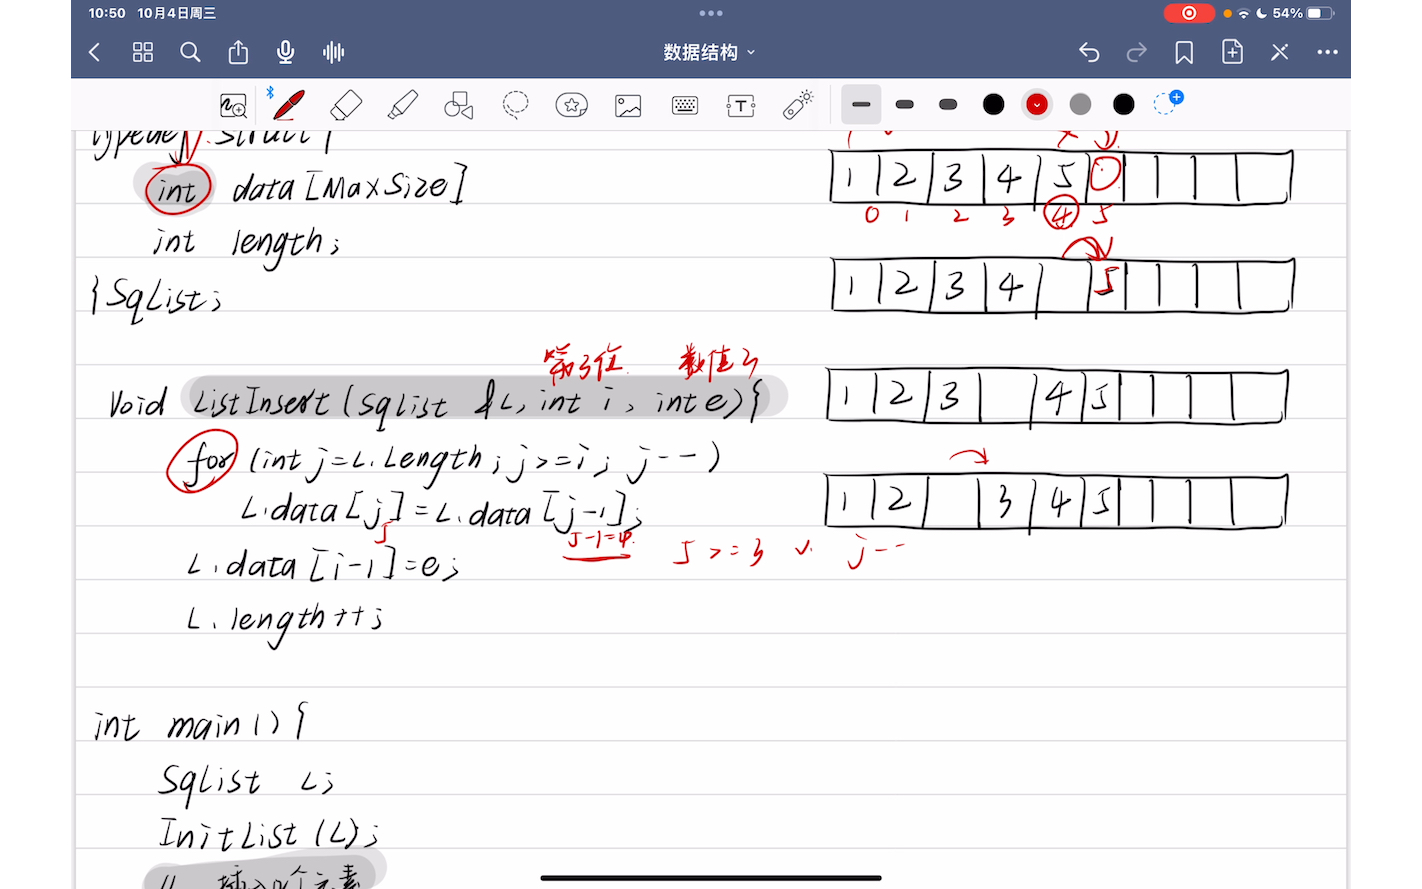 10:50 10月4日周三
54%
数据结构
typedef struct {
int data [MaxSize]
int length;
}SqList;
第3位 数值3
Void ListInsert (SqList &L, int i, int e){
for (int j=L.Length; j>=i; j--)
L.data[j]=L.data[j-1];
5
5-1=4.
5>=3 ✓. j--
L.data[i-1]=e;
L.length++;
int main(){
SqList L;
InitList(L);
1 2 3 4 5
0 1 2 3 4 5
1 2 3 4 5
1 2 3 4 5
1 2 3 4 5